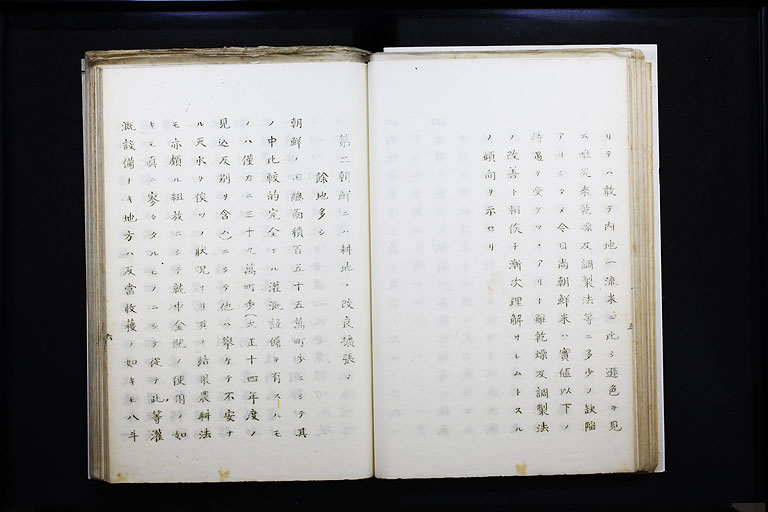 リテハ敢テ内地一流米ニ比シ遜色ヲ見
ス唯従来乾燥及調製法等ニ多少ノ缺陥
アリシタメ今日尚朝鮮米ハ實値以下ノ
待遇ヲ受ケツヽアリト雖乾燥及調製法
ノ改善ト相俟チ漸次理解サレムトスル
ノ傾向ヲ示セリ
五
第二朝鮮ニハ耕地ノ改良擴張ノ
餘地多シ
朝鮮ノ田總面積百五十五萬町歩ニシテ其
ノ中比較的完全ナル灌漑設備ヲ有スルモ
ノハ僅カニ三十九萬町歩(大正十四年度ノ
見込反別ヲ含ム)ニシテ他ハ擧ケテ不安ナ
ル天水ヲ俟ツノ状況ナリ其ノ結果農耕法
モ亦頗ル粗放ニシテ就中金肥ノ使用ノ如
キモ眞ニ寥々タルモノニシテ從テ此等灌
漑設備ナキ地方ハ反當收穫ノ如キモ八斗
六